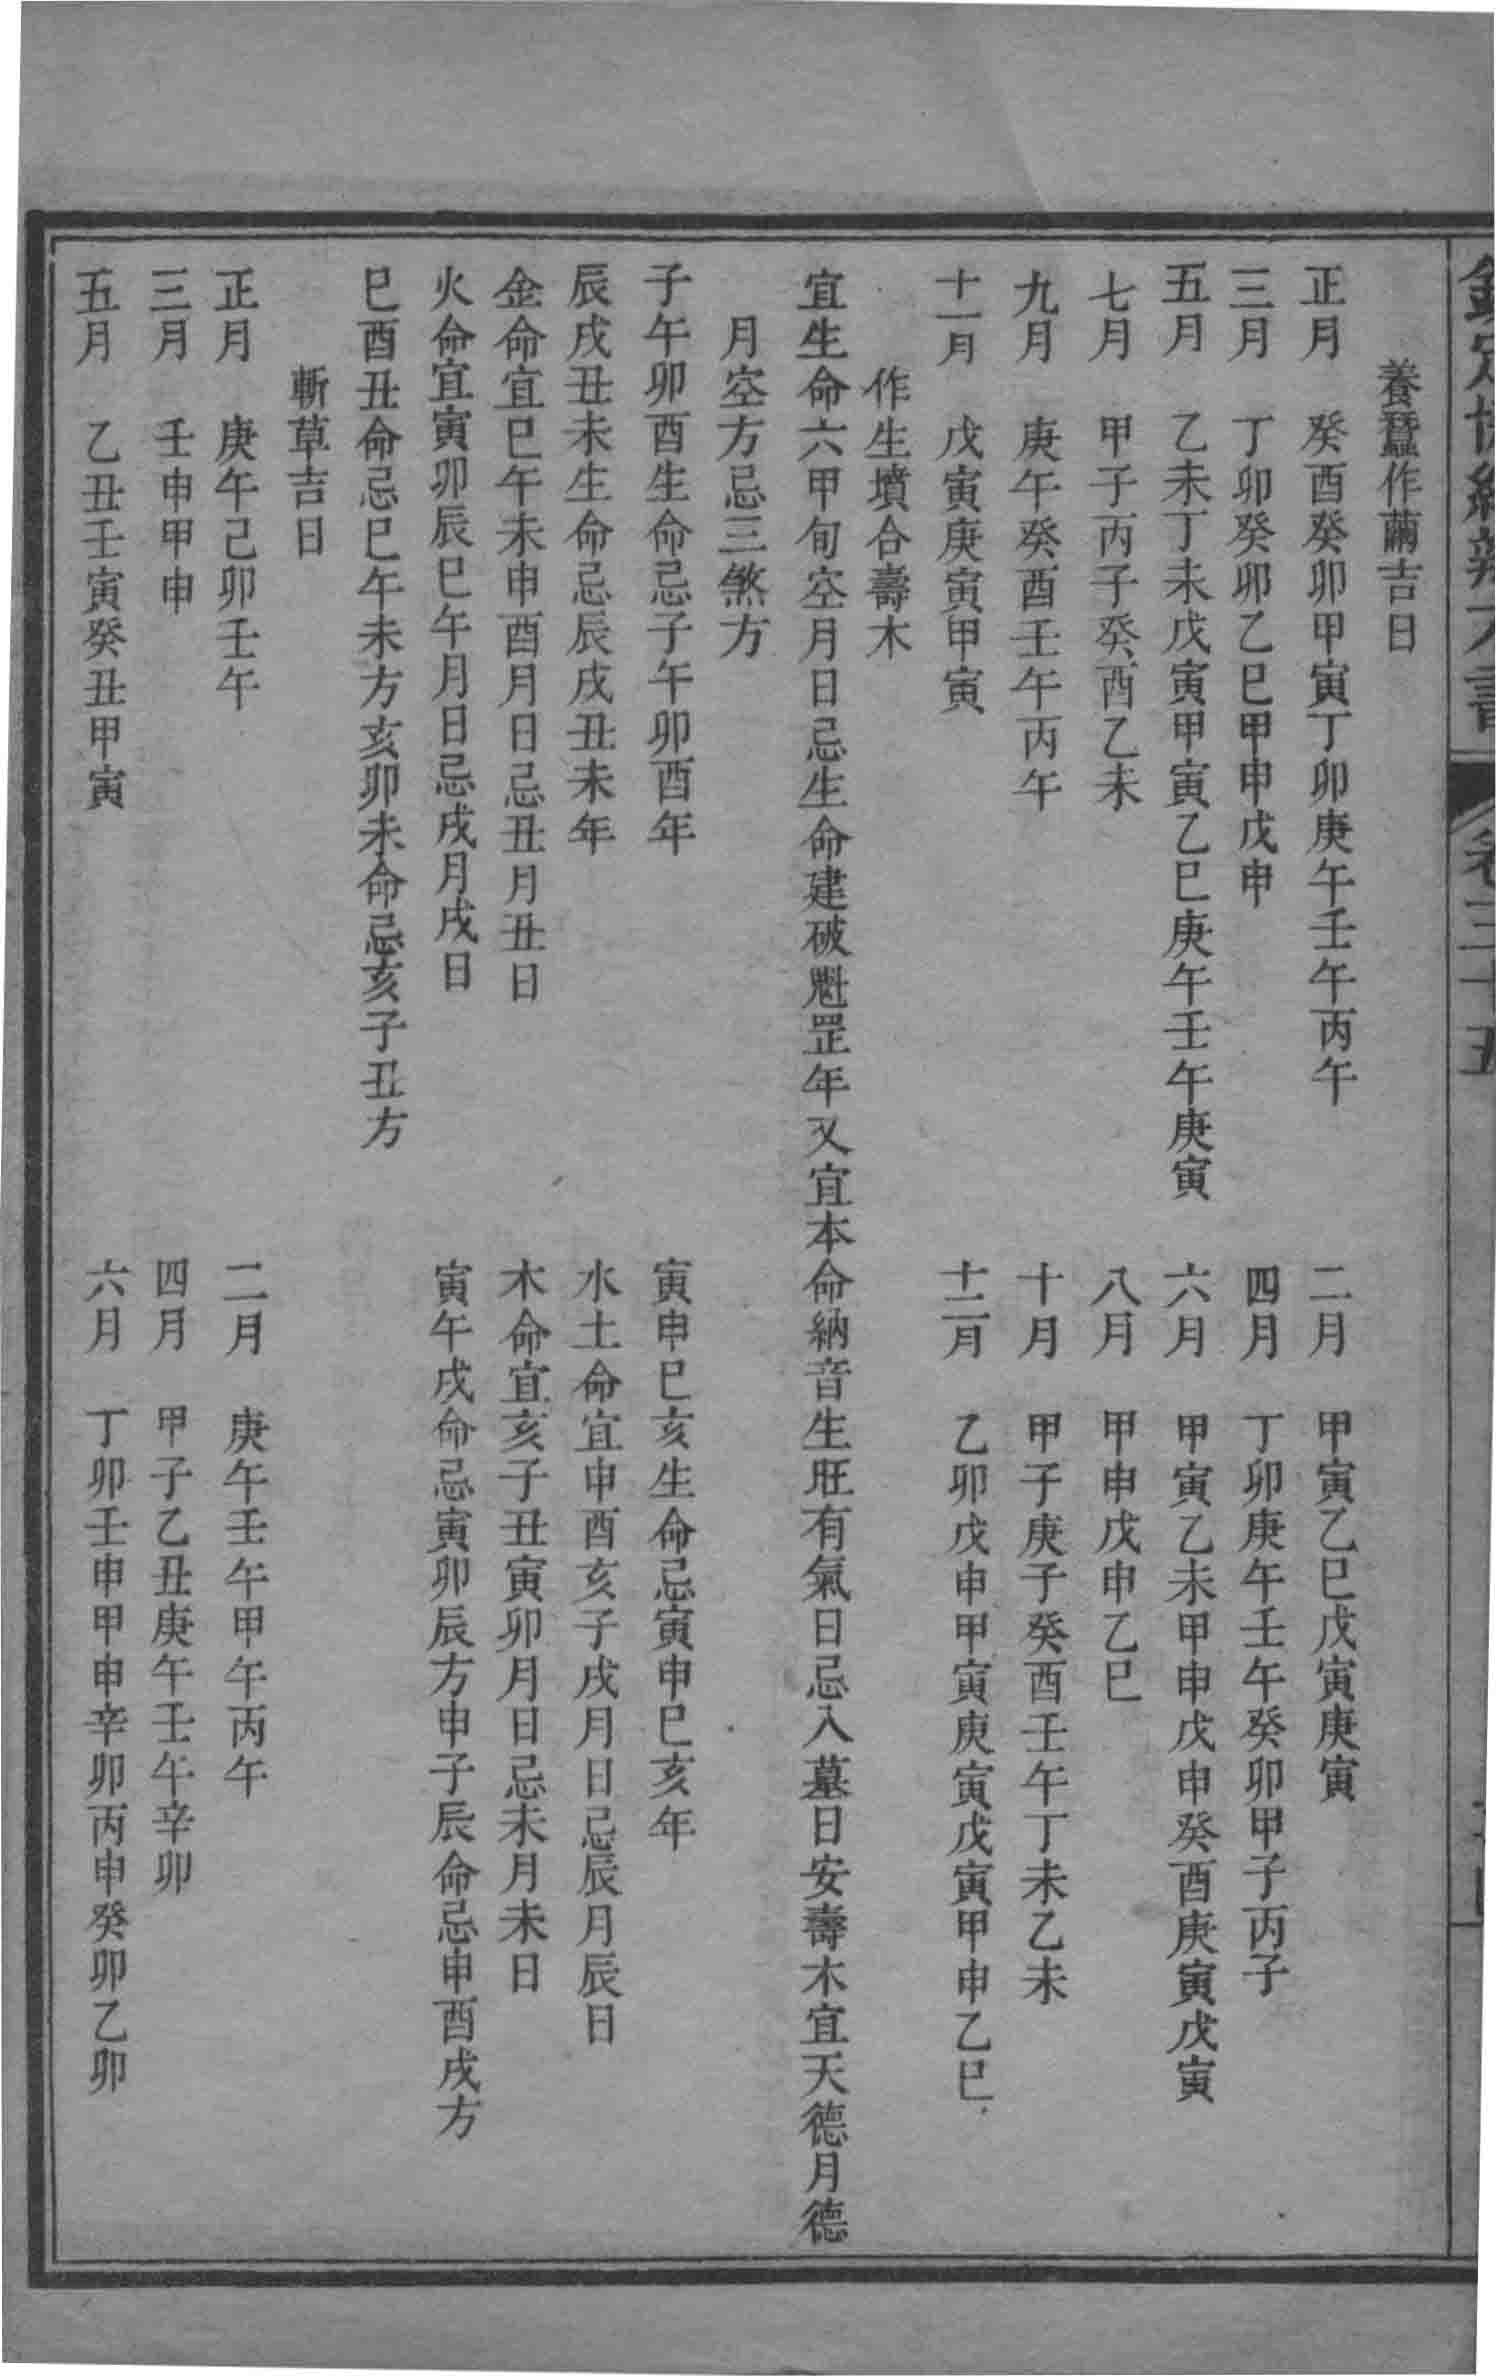 養蠶作繭吉日
正月　癸酉癸卯甲寅丁卯庚午壬午丙午　二月　甲寅乙巳戊寅庚寅
三月　丁卯癸卯乙巳甲申戊申　四月　丁卯庚午壬午癸卯甲子丙子
五月　乙未丁未戊寅甲寅乙巳庚午壬午庚寅　六月　甲寅乙未甲申戊申癸酉庚寅戊寅
七月　甲子丙子癸酉乙未　八月　甲申戊申乙巳
九月　庚午癸酉壬午丙午　十月　甲子庚子癸酉壬午丁未乙未
十一月　戊寅庚寅甲寅　十二月　乙卯戊申甲寅庚寅戊寅甲申乙巳
作生墳合壽木
宜生命六甲旬空月日忌生命建破魁罡年又宜本命納音生旺有氣日忌入墓日安壽木宜天德月德
月空方忌三煞方
子午卯酉生命忌子午卯酉年　寅申巳亥生命忌寅申巳亥年
辰戌丑未生命忌辰戌丑未年　水土命宜申酉亥子戌月日忌辰月辰日
金命宜巳午未申酉月日忌丑月丑日　木命宜亥子丑寅卯月日忌未月未日
火命宜寅卯辰巳午月日忌戌月戌日　寅午戌命忌寅卯辰方申子辰命忌申酉戌方
巳酉丑命忌巳午未方亥卯未命忌亥子丑方
斬草吉日
正月　庚午己卯壬午　二月　庚午壬午甲午丙午
三月　壬申甲申　四月　甲子乙丑庚午壬午辛卯
五月　乙丑壬寅癸丑甲寅　六月　丁卯壬申甲申辛卯丙申癸卯乙卯